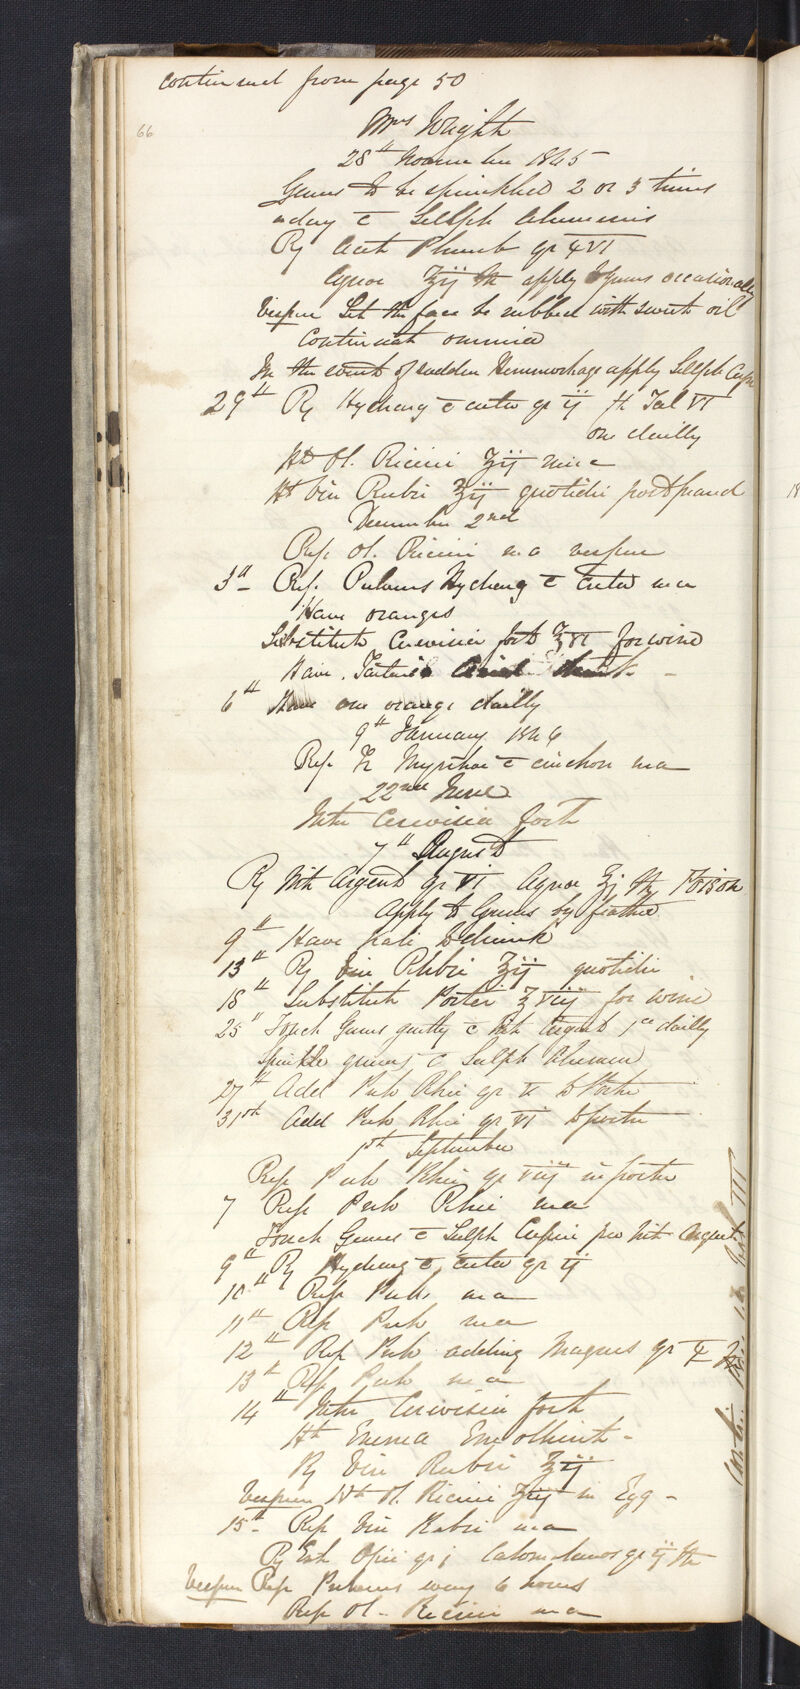 continued from page 50
66
Mrs Wright
28th November 1845
Gums to be sprinkled 2 or 3 times
a day c Sulph Aluminis
Rx Acet Plumb gr
Aquae ʒij ft apply to gums occasionally
Vespere Let the face be rubbed with sweet oil
Continuat omnia
In the event of sudden Hemmorhage apply Sulph Cupri
29th Rx Hydrarg c creta gr ij ft Tal VI
one dailly
Ht Ol. Ricini ʒij
Ht Vin Rubri ʒij quotidie post prand
December 2nd
Rep. Ol. Ricini m a vespere
3d Rep. Pulveres Hydrarg c Creta m a
Have oranges
Substitute Cerevisia fort ʒvi for wine
Have
6th Have one orange dailly
9th January 1846
Rep. Tr Myrrhae c cinchon m a
22nd June
Intr Cerevisia fort
7th August
Rx Nit Argent gr vi Aquae ʒj ft Poison
Apply to Gums by feather
9th Have to drink
13th Rx Vin Rubri ʒij quotidie
18th Substitute Porter ʒviij for wine
25th Touch Gums gently c Nit Argent dailly
Sprinkle gums c Sulph Alumin
27th Add Pulv Rhei gr v to Porter
31st Add Pulv Rhei gr vi to porter
1st September
Rep Pulv Rhei gr viij in porter
7 Rep Pulv Rhei m a
Touch Gums c Sulph Cupri pro Nit Argent
9th Rx Hydrarg c creta gr ij
10th Rep Pulv m a
11th Rep Pulv m a
12th Rep Pulv adding Magnes gr
13th Rep Pulv m a
14th Intr Cerevisia fort
Ht Enema Emollient
Rx Vin Rubri ʒij
Vespere Ht Ol. Ricini in Egg
15th Rep Vin Rubri m a
Rx Ext Opii gr j Calomelanos gr ij ft
Vespere Rep Pulveres every 6 hours
Rep Ol. Ricini m a
18